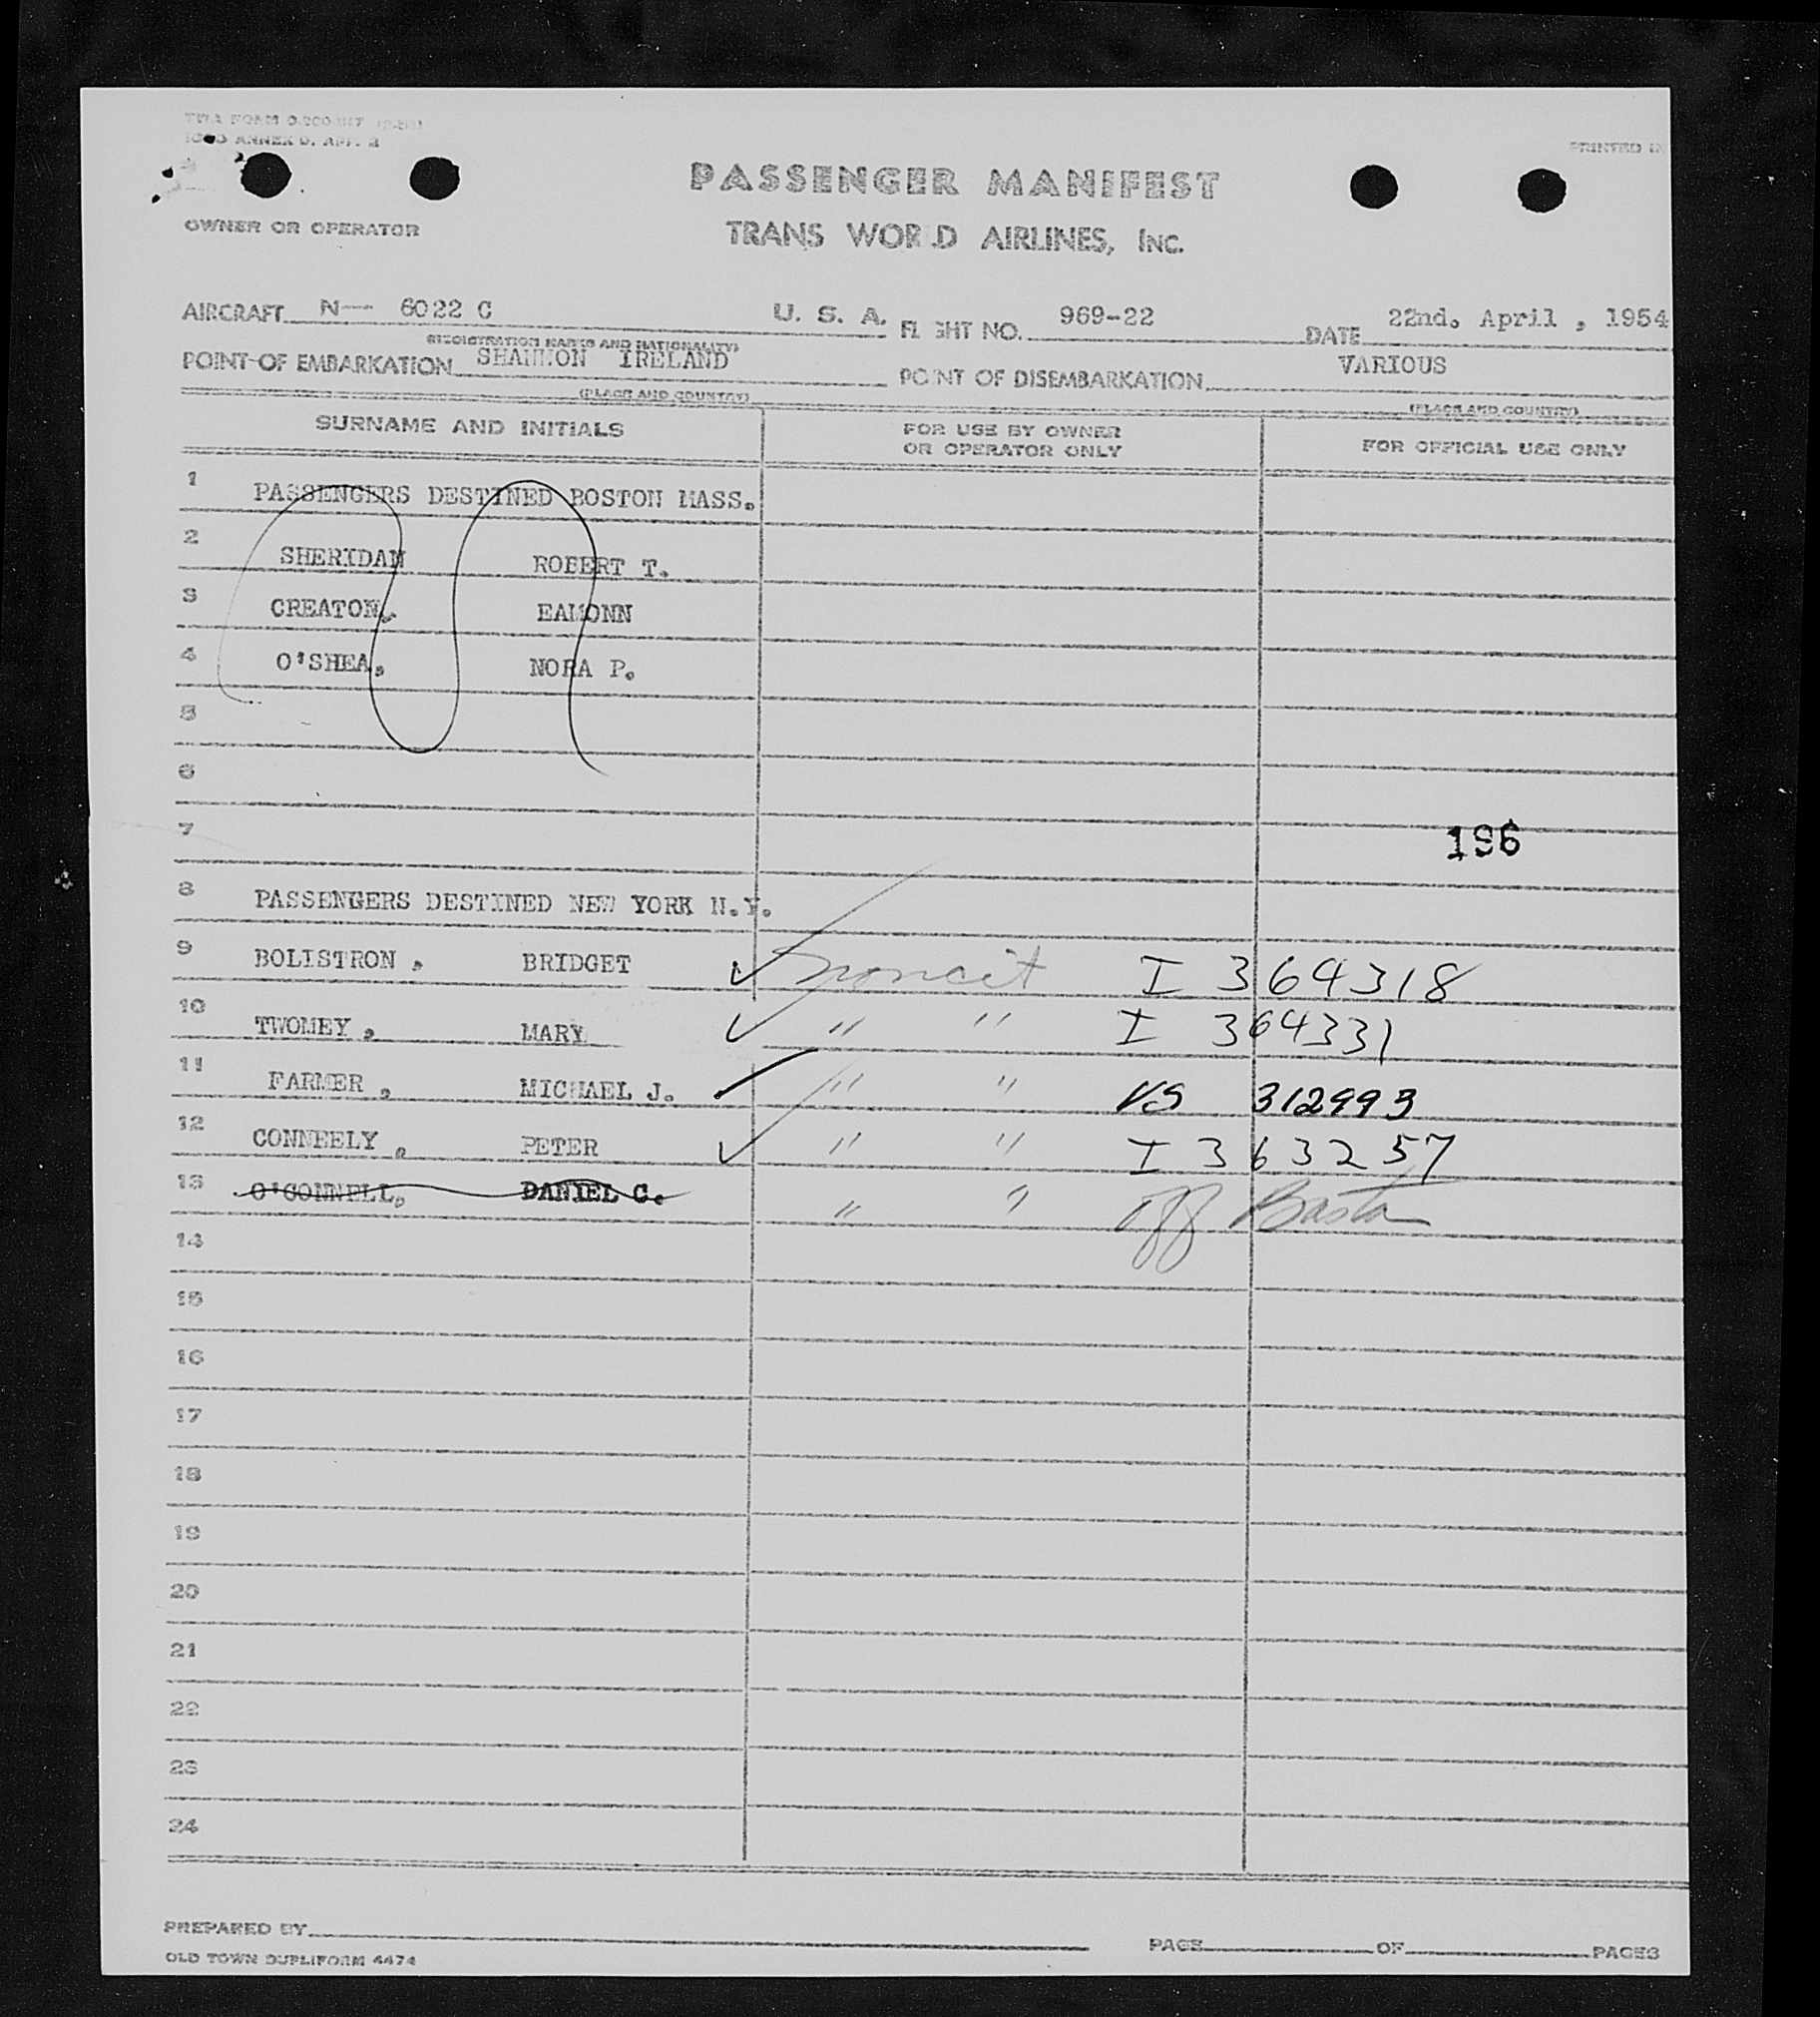 PASSENGER MANIFEST
PRINTED IN
OWNER OR OPERATOR
TRANS WOR D AIRLINES, INC.
AIRCRAFT N-- 6022 C U. S. A. FL GHT NO. 969-22 DATE 22nd. April , 1954
(REGISTRATION MARKS AND NATIONALITY)
POINT OF EMBARKATION SHANNON IRELAND POINT OF DISEMBARKATION VARIOUS
(PLACE AND COUNTRY) (PLACE AND COUNTRY)
SURNAME AND INITIALS FOR USE BY OWNER OR OPERATOR ONLY FOR OFFICIAL USE ONLY
1 PASSENGERS DESTINED BOSTON MASS.
2 SHERIDAN ROBERT T.
3 CREATON, EAMONN
4 O'SHEA, NORA P.
5
6
7 196
8 PASSENGERS DESTINED NEW YORK N.Y.
9 BOLISTRON , BRIDGET ✓ noncit I 364318
10 TWOMEY , MARY ✓ " " I 364331
11 FARMER , MICHAEL J. ✓ " " VS 312993
12 CONNEELY , PETER ✓ " " I 363257
13 O'CONNELL, DANIEL C. " " off
14
15
16
17
18
19
20
21
22
23
24
PREPARED BY PAGE OF PAGES
OLD TOWN DUPLIFORM 4474